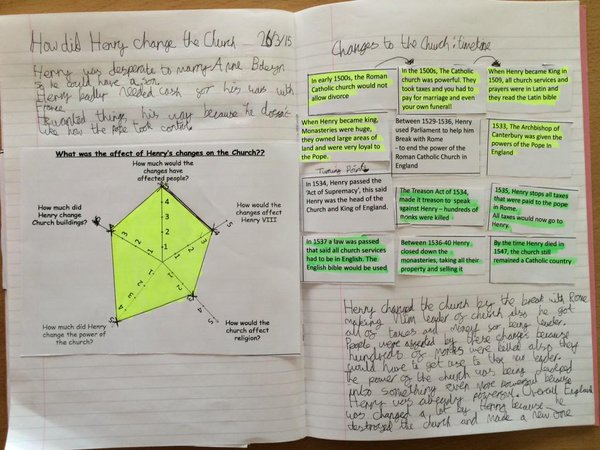 How did Henry change the Church 26/3/15
Henry was desperate to marry Anne Boleyn
so he could have a son.
Henry badly needed cash got his wars with
France
H wanted things his way because he doesn't
like how the pope took control.
What was the affect of Henry's changes on the Church??
How much would the
changes have
affected people?
How much did
Henry change
Church buildings?
How would the
changes affect
Henry VIII
How much did Henry
change the power of
the church?
How would the
church affect
religion?
5
4
3
2
1
Changes to the Church: timeline
In early 1500s, the Roman
Catholic church would not
allow divorce
In the 1500s, The Catholic
church was powerful. They
took taxes and you had to
pay for marriage and even
your own funeral!
When Henry became King in
1509, all church services and
prayers were in Latin and
they read the Latin bible
When Henry became king,
Monasteries were huge,
they owned large areas of
land and were very loyal to
the Pope.
Between 1529-1536, Henry
used Parliament to help him
Break with Rome
- to end the power of the
Roman Catholic Church in
England
1533, The Archbishop of
Canterbury was given the
powers of the Pope in
England
Turning Point
In 1534, Henry passed the
'Act of Supremacy', this said
Henry was the head of the
Church and King of England.
The Treason Act of 1534,
made it treason to speak
against Henry – hundreds of
monks were killed
1535, Henry stops all taxes
that were paid to the pope
in Rome.
All taxes would now go to
Henry.
In 1537 a law was passed
that said all church services
had to be in English. The
English bible would be used
Between 1536-40 Henry
closed down the
monasteries, taking all their
property and selling it
By the time Henry died in
1547, the church still
remained a Catholic country
Henry changed the church by the break with Rome
making him leader of church also he got
all of taxes and money for being leader.
People were affected by these changes because
hundreds of monks were killed also they
would have to get use to this new leader.
The power of the church was being developed
into something even more powerful because
Henry was already powerful. Overall England
was changed a lot by Henry because he
destroyed the church and made a new one